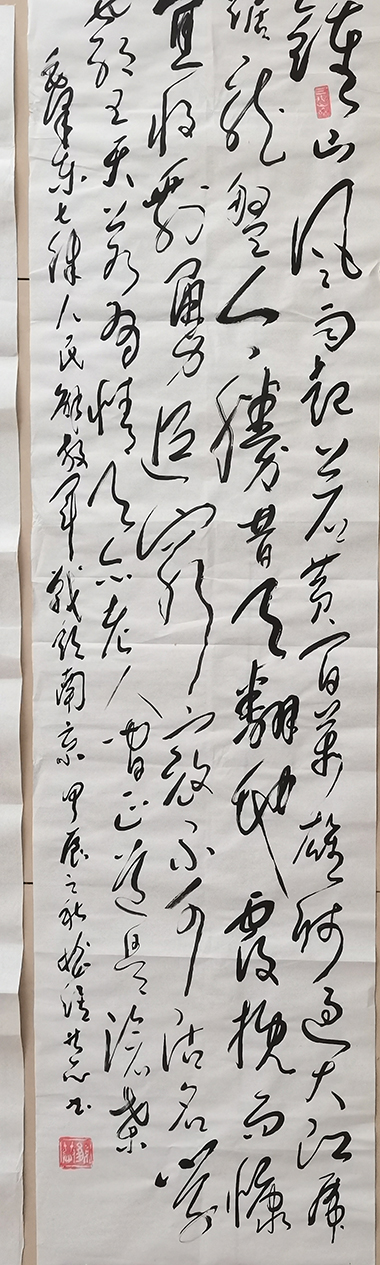 鍾山風雨起蒼黃百萬雄師過大江虎
踞龍盤今勝昔天翻地覆慨而慷
宜將剩勇追窮寇不可沽名學
霸王天若有情天亦老人間正道是滄桑
毛澤東七律人民解放軍戰領南京 甲辰之秋 書